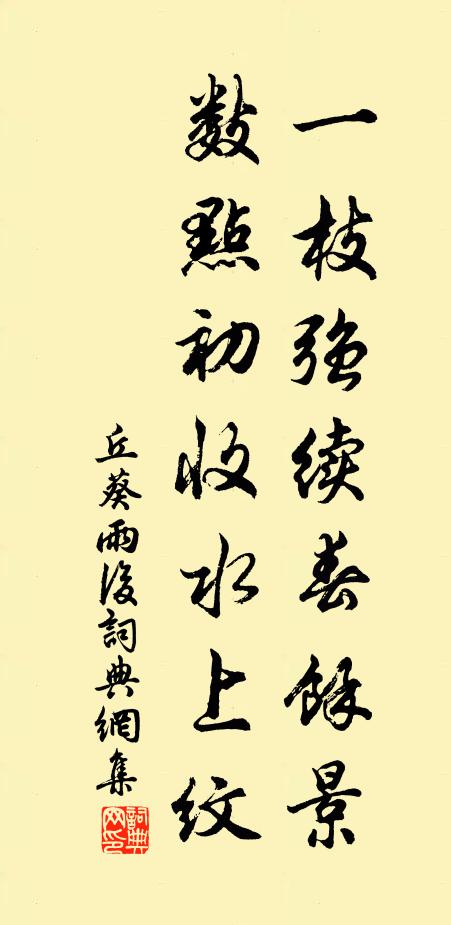 一枝強續春餘景
數點初收水上紋
丘葵雨後詞典網集
詞典網印